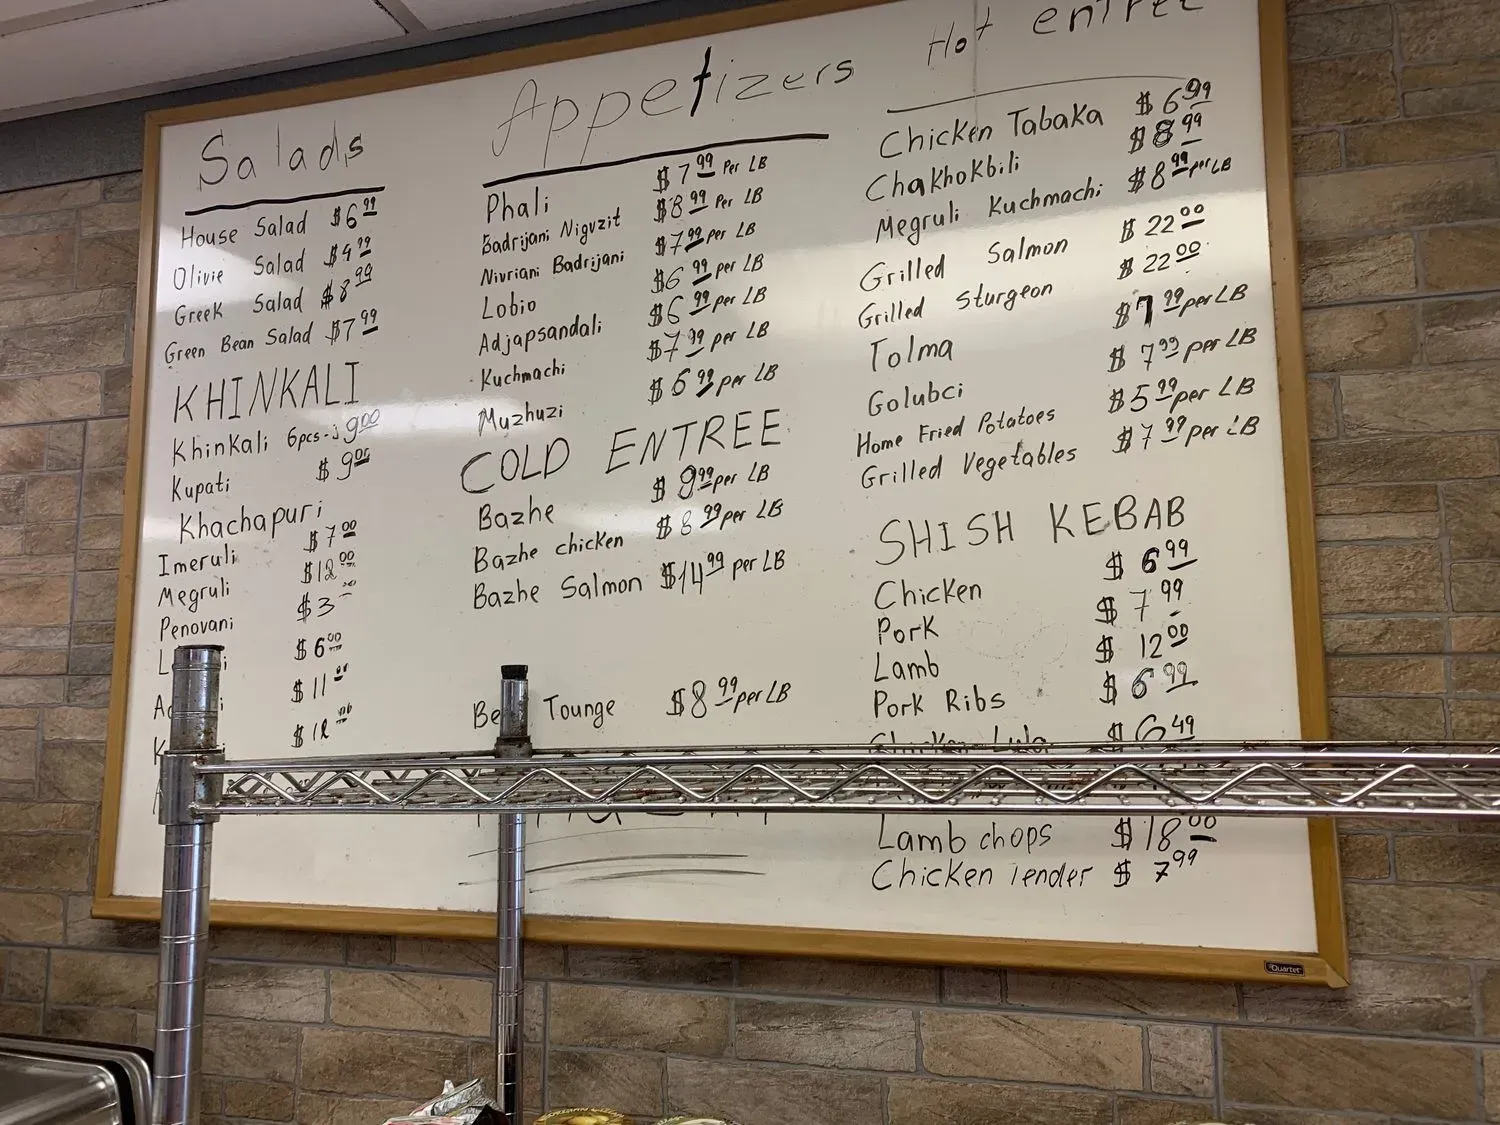 Salads
House Salad $6.99
Olivie Salad $4.99
Greek Salad $8.99
Green Bean Salad $7.99
KHINKALI
Khinkali 6pcs - 9.00
Kupati $9.00
Khachapuri
Imeruli $7.00
Megruli $12.00
Penovani $3
$6.00
$11
$12
Appetizers
Phali $7.99 Per LB
Badrijani Nigvzit $8.99 Per LB
Nivriani Badrijani $7.99 per LB
Lobio $6.99 per LB
Adjapsandali $6.99 per LB
Kuchmachi $7.99 per LB
Muzhuzi $6.99 per LB
COLD ENTREE
Bazhe $9.99 per LB
Bazhe chicken $8.99 per LB
Bazhe Salmon $14.99 per LB
Tounge $8.99 per LB
Hot entree
Chicken Tabaka $6.99
Chakhokbili $8.99
Megruli Kuchmachi $8.99 per LB
Grilled Salmon $22.00
Grilled Sturgeon $22.00
Tolma $7.99 per LB
Golubci $7.99 per LB
Home Fried Potatoes $5.99 per LB
Grilled Vegetables $7.99 per LB
SHISH KEBAB
Chicken $6.99
Pork $7.99
Lamb $12.00
Pork Ribs $6.99
Chicken Lula $6.49
Lamb chops $18.00
Chicken Tender $7.99
Quartet